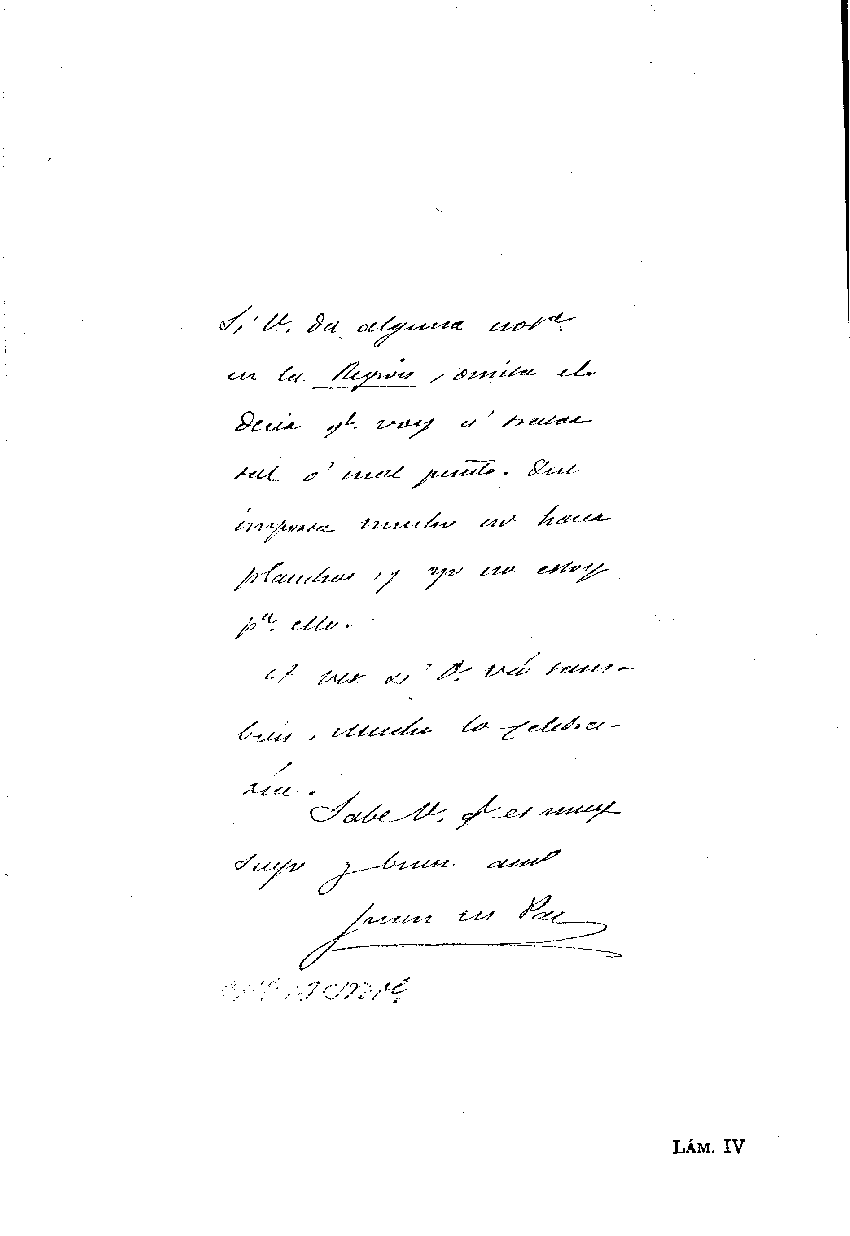 Si V. da alguna nota
en la Region, omita el
decir qe. voy á tratar
tal ó cual punto. Que
importa mucho no hacer
planchas, y yo no estoy
pa. ello.
A ver si V. vá tam-
bien, mucho lo celebra-
ría.
Sabe V. qe es muy
suyo y buen amo
Juan en Paz
LÁM. IV